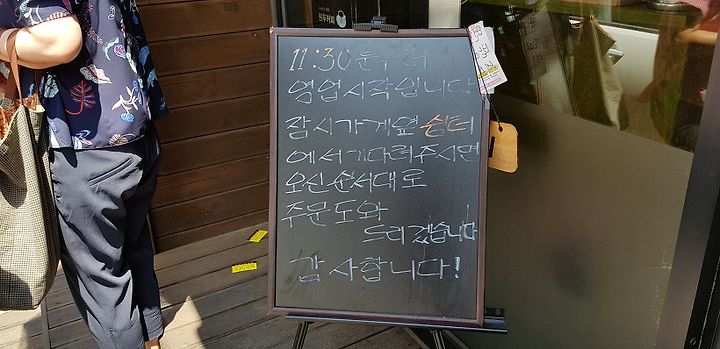 11:30분부터
영업시작입니다
잠시가게옆 쉼터
에서기다려주시면
오신순서대로
주문도와
드리겠습니다
감사합니다!